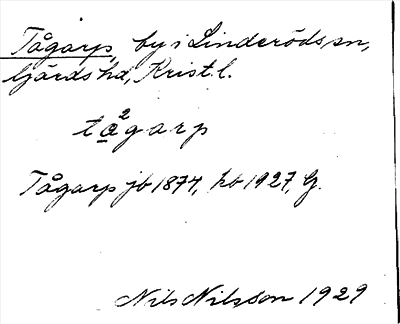 Tågarp, by i Linderöds sn,
Gärds hd, Krist. l.
ta²garp
Tågarp jb 1874, hb 1927, G.
Nils Nilsson 1929